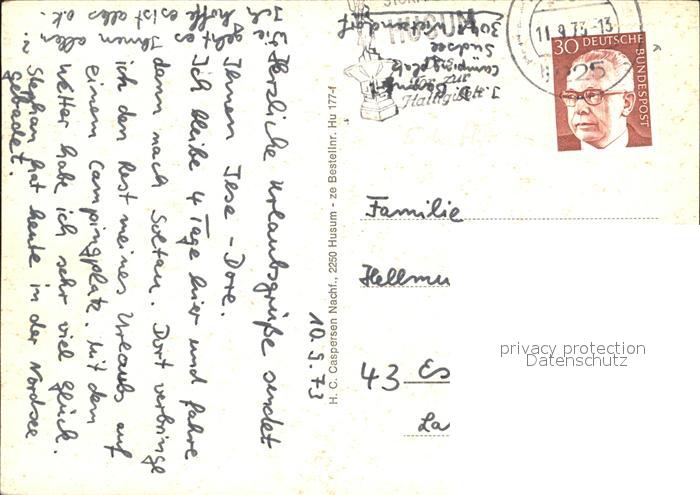 Herzliche Urlaubsgrüße sendet
Ihnen Ilse-Dore.
Ich bleibe 4 Tage hier und fahre
dann nach Soltau. Dort verbringe
ich den Rest meines Urlaubs auf
einem Campingplatz. Mit dem
Wetter habe ich sehr viel Glück.
Stephan hat heute in der Nordsee
gebadet.
Wie geht es Ihnen allen?
Ich hoffe es ist alles o.k.
10.9.73
H. C. Caspersen Nachf., 2250 Husum - ze Bestellnr. Hu 177-f
Campingplatz
Südsee
Tor zur
Halligwelt
11.9.73-13
225
30 DEUTSCHE
BUNDESPOST
Familie
Hellmu
43 Es
La
privacy protection
Datenschutz